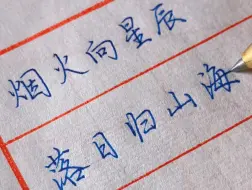 烟火向星辰
落日归山海